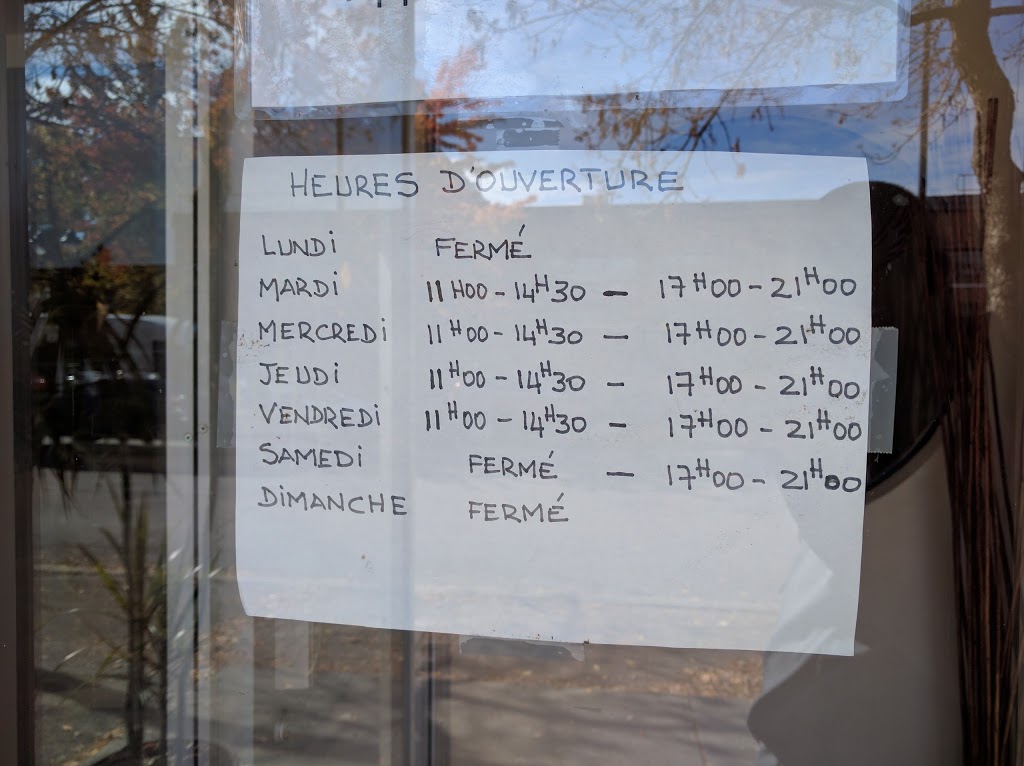 HEURES D'OUVERTURE
LUNDI FERMÉ
MARDI 11H00 - 14H30 - 17H00 - 21H00
MERCREDI 11H00 - 14H30 - 17H00 - 21H00
JEUDI 11H00 - 14H30 - 17H00 - 21H00
VENDREDI 11H00 - 14H30 - 17H00 - 21H00
SAMEDI FERMÉ - 17H00 - 21H00
DIMANCHE FERMÉ